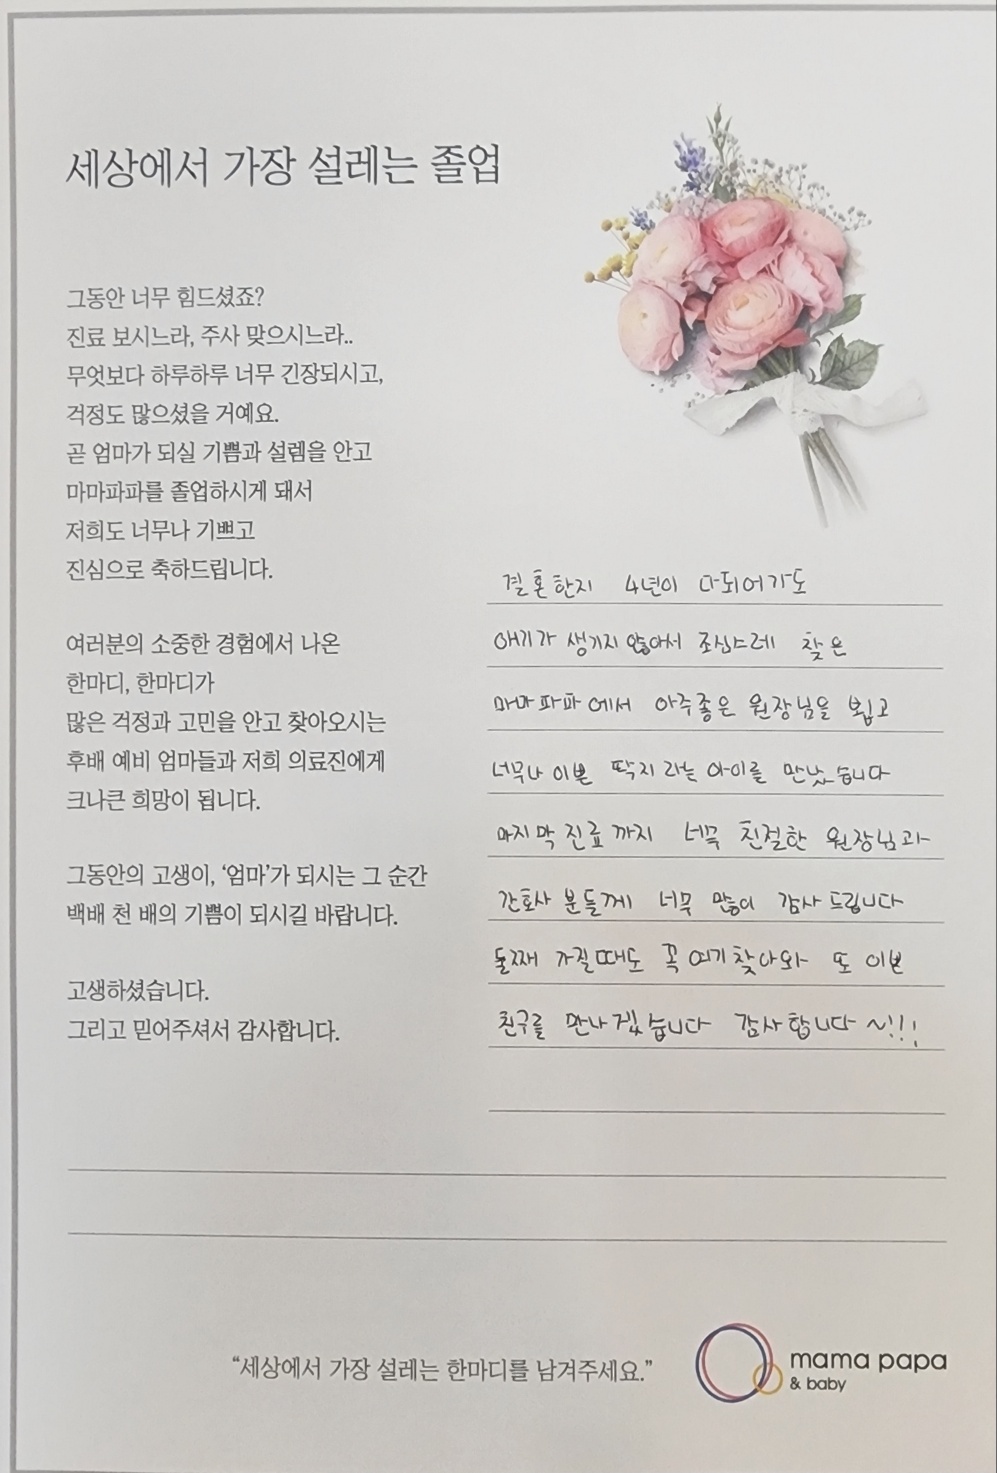 세상에서 가장 설레는 졸업
그동안 너무 힘드셨죠?
진료 보시느라, 주사 맞으시느라..
무엇보다 하루하루 너무 긴장되시고,
걱정도 많으셨을 거예요.
곧 엄마가 되실 기쁨과 설렘을 안고
마마파파를 졸업하시게 돼서
저희도 너무나 기쁘고
진심으로 축하드립니다.
여러분의 소중한 경험에서 나온
한마디, 한마디가
많은 걱정과 고민을 안고 찾아오시는
후배 예비 엄마들과 저희 의료진에게
크나큰 희망이 됩니다.
그동안의 고생이, ‘엄마’가 되시는 그 순간
백배 천 배의 기쁨이 되시길 바랍니다.
고생하셨습니다.
그리고 믿어주셔서 감사합니다.
결혼한지 4년이 다되어가도
애기가 생기지 않아서 조심스레 찾은
마마파파에서 아주좋은 원장님을 뵙고
너무나 이쁜 딱지라는 아이를 만났습니다
마지막 진료까지 너무 친절한 원장님과
간호사 분들께 너무 많이 감사드립니다
둘째 가질때도 꼭 여기찾아와 또 이쁜
친구를 만나겠습니다 감사합니다~!!!
“세상에서 가장 설레는 한마디를 남겨주세요.”
mama papa
& baby